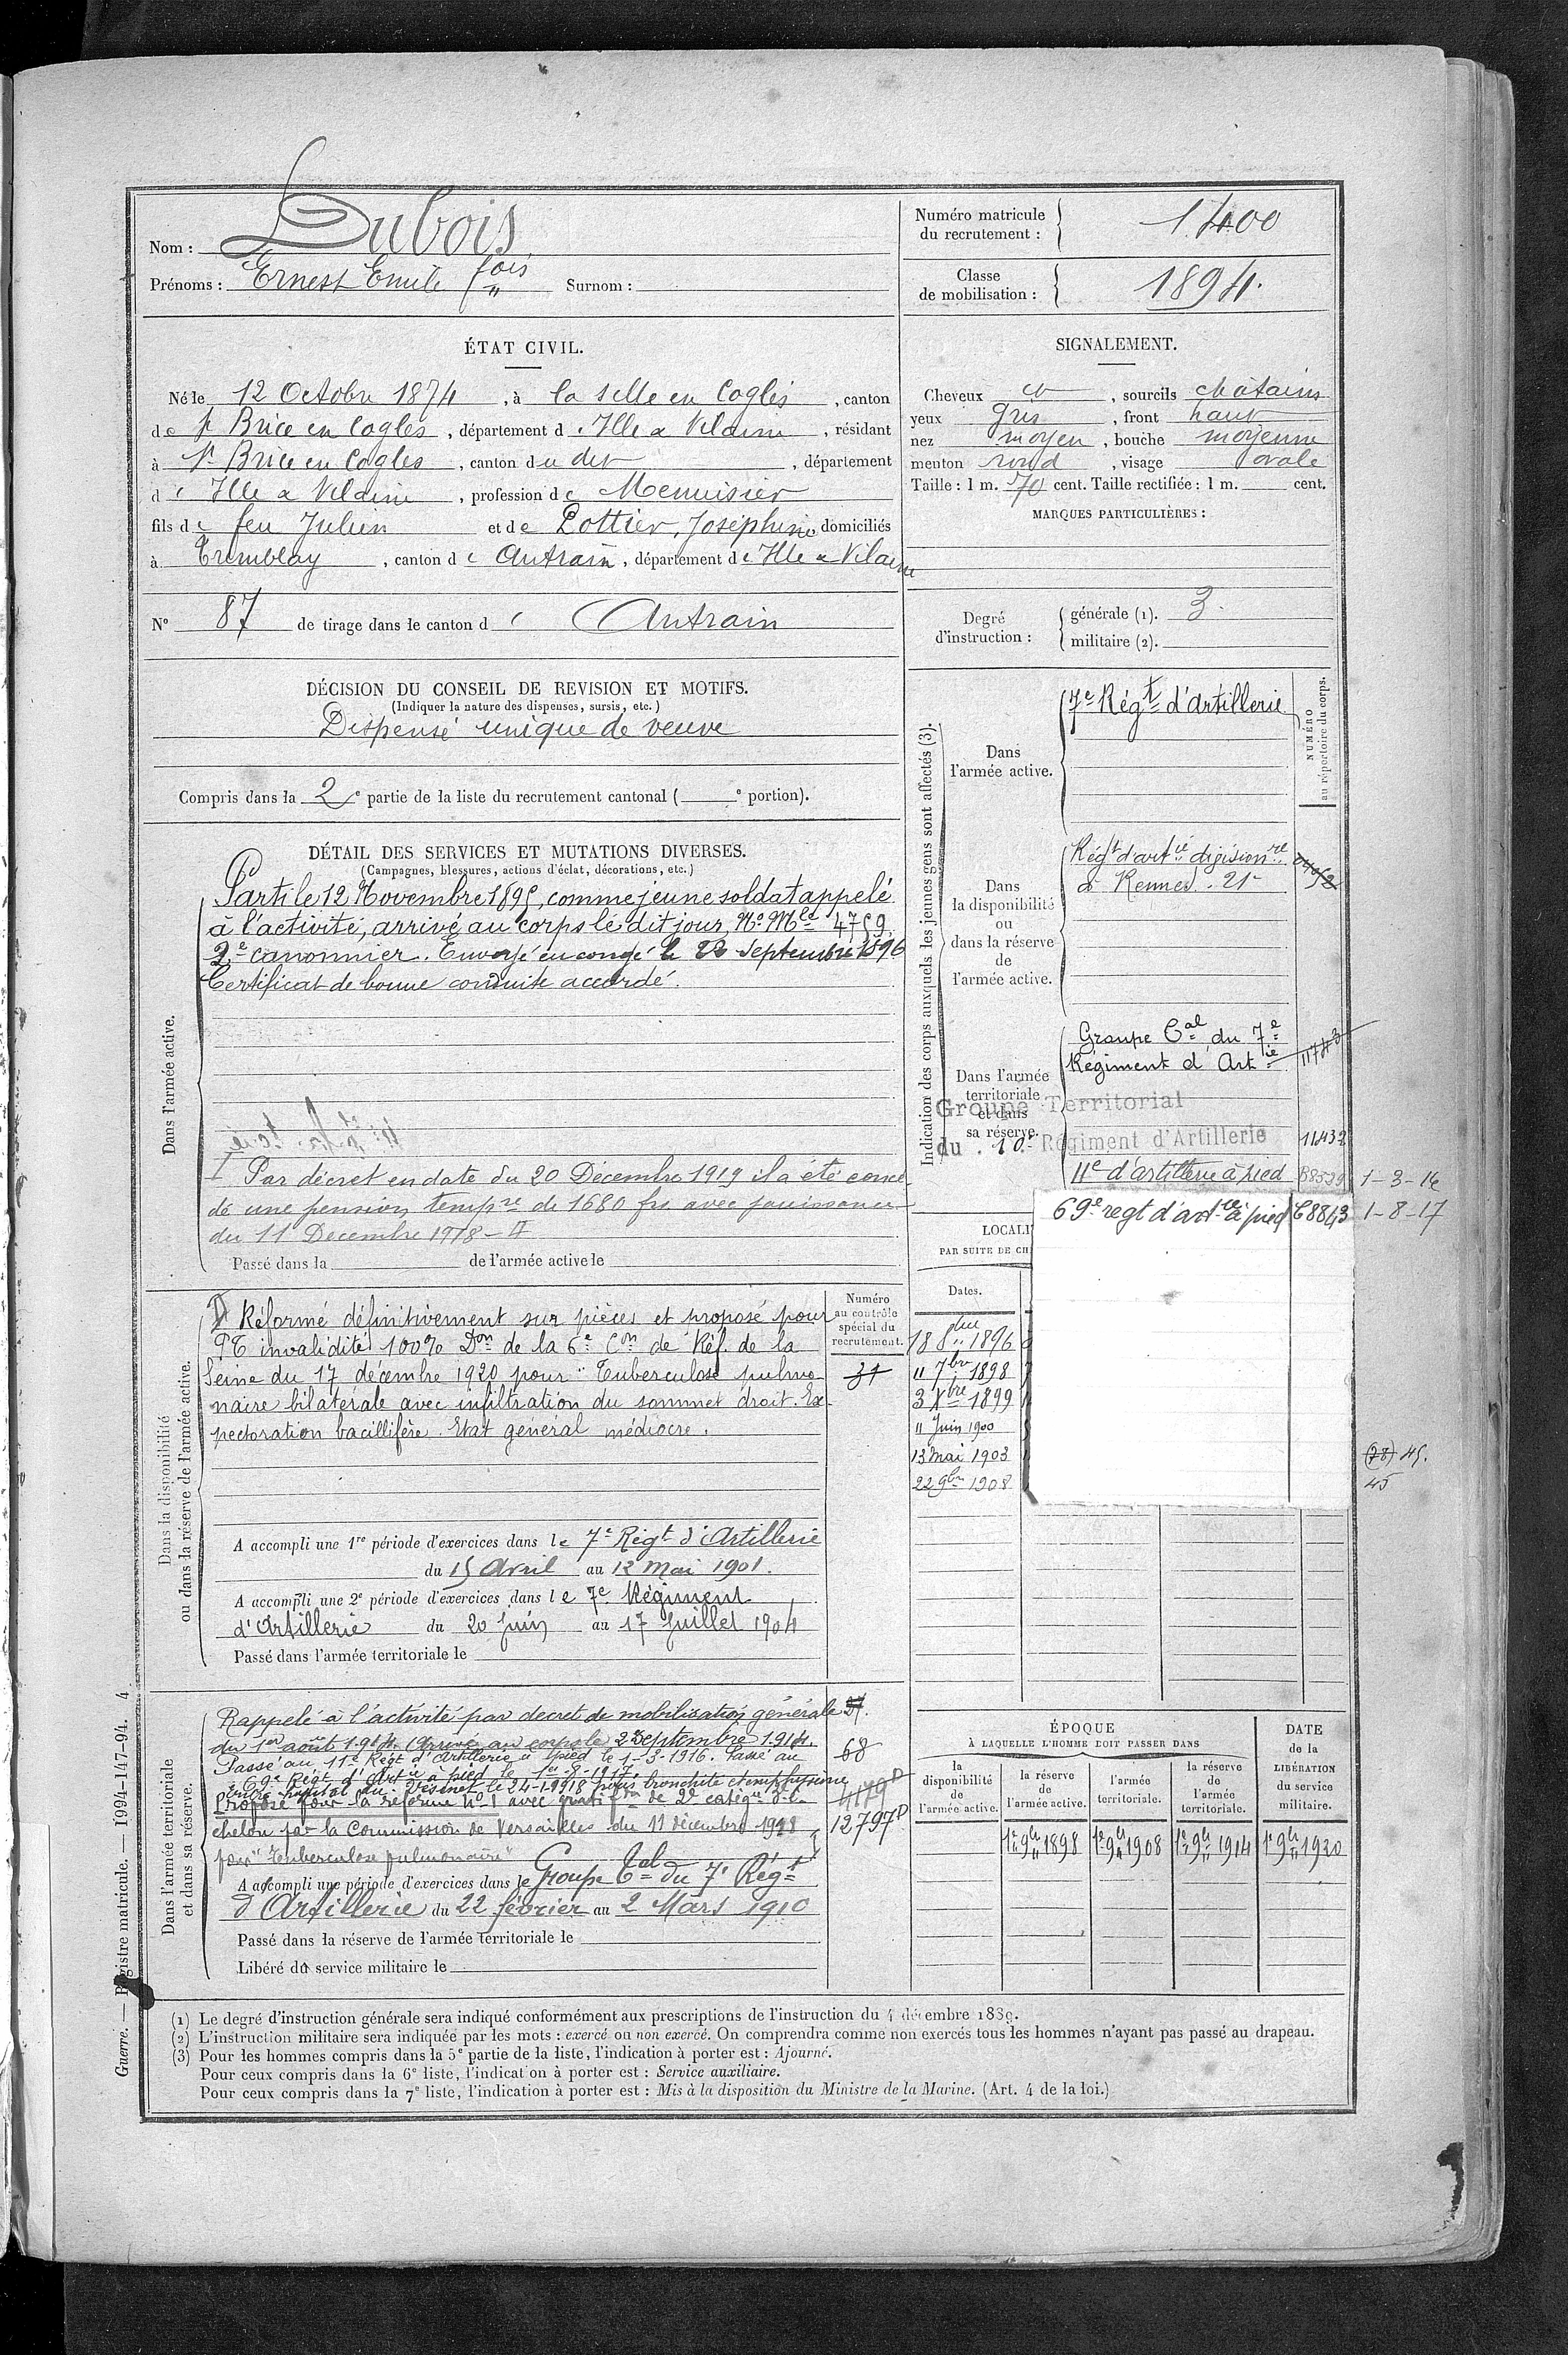 Nom : Dubois
Prénoms : Ernest Emile fois Surnom :
Numéro matricule du recrutement : 1400
Classe de mobilisation : 1894.
ÉTAT CIVIL.
Né le 12 Octobre 1874, à la selle en Coglès, canton
de St Brice en Coglès, département d'Ille & Vilaine, résidant
à St Brice en Coglès, canton du dit, département
d'Ille & Vilaine, profession de Menuisier
fils de feu Julien et de Pottier, Joséphine, domiciliés
à Tremblay, canton d'Antrain, département d'Ille & Vilaine
N° 87 de tirage dans le canton d' Antrain
SIGNALEMENT.
Cheveux et, sourcils châtains
yeux gris, front haut
nez moyen, bouche moyenne
menton rond, visage ovale
Taille : 1 m. 70 cent. Taille rectifiée : 1 m. cent.
MARQUES PARTICULIÈRES :
Degré d'instruction : générale (1). 3.
militaire (2).
DÉCISION DU CONSEIL DE REVISION ET MOTIFS.
(Indiquer la nature des dispenses, sursis, etc.)
Dispensé unique de veuve
Compris dans la 2e partie de la liste du recrutement cantonal ( e portion).
DÉTAIL DES SERVICES ET MUTATIONS DIVERSES.
(Campagnes, blessures, actions d'éclat, décorations, etc.)
Dans l'armée active.
Parti le 12 Novembre 1895, comme jeune soldat appelé
à l'activité, arrivé au corps le dit jour, No Mle 4759
2e canonnier. Envoyé en congé le 22 Septembre 1896
Certificat de bonne conduite accordé.
I Par décret en date du 20 Décembre 1919 il a été concé-
dé une pension tempre de 1680 frs avec jouissance
du 11 Décembre 1918 - II
Passé dans la de l'armée active le
Indication des corps auxquels les jeunes gens sont affectés (3).
NUMÉRO au répertoire du corps.
Dans l'armée active.
7e Régt d'artillerie
Dans la disponibilité ou dans la réserve de l'armée active.
Régt d'artie divisionre
à Rennes. 21
Dans l'armée territoriale et dans sa réserve.
Groupe Tal du 7e
Régiment d'Artie 11743
Groupe Territorial
du 10e Régiment d'Artillerie 11432
11e d'artillerie à pied 1-3-16
69e regt d'artie à pied 68843 1-8-17
LOCALI
PAR SUITE DE CH
Dates.
18 8bre 1896
11 7bre 1898
3 Xbre 1899
11 Juin 1900
13 Mai 1903
22 9bre 1908
(78) 45.
45
Dans la disponibilité ou dans la réserve de l'armée active.
Numéro au contrôle spécial du recrutement.
31
Réformé définitivement sur pièces et proposé pour
PT invalidité 100% Don de la 6e Con de Réf. de la
Seine du 17 décembre 1920 pour "Tuberculose pulmo-
naire bilatérale avec infiltration du sommet droit. Ex-
pectoration bacillifère. Etat général médiocre.
A accompli une 1re période d'exercices dans le 7e Régt d'Artillerie
du 15 Avril au 12 Mai 1901.
A accompli une 2e période d'exercices dans le 7e Régiment
d'Artillerie du 20 Juin au 17 Juillet 1904
Passé dans l'armée territoriale le
Dans l'armée territoriale et dans sa réserve.
Rappelé à l'activité par décret de mobilisation générale
du 1er août 1914. Arrivé au corps le 2 Septembre 1914.
Passé au 11e Régt d'Artillerie à pied le 1-3-1916. Passé au
69e Régt d'Artie à pied le 1er-8-1917.
Entré hôpital du Vésinet le 24-1-1918 pour bronchite et emphysème
Proposé pour la réforme No 1 avec gratifon de 2e catégie
échelon par la Commission de Versailles du 11 décembre 1918
pour "Tuberculose pulmonaire"
68
12797P
A accompli une période d'exercices dans le Groupe Tal du 7e Régt
d'Artillerie du 22 février au 2 Mars 1910
Passé dans la réserve de l'armée territoriale le
Libéré du service militaire le
ÉPOQUE
À LAQUELLE L'HOMME DOIT PASSER DANS
la disponibilité de l'armée active.
la réserve de l'armée active.
l'armée territoriale.
la réserve de l'armée territoriale.
DATE de la LIBÉRATION du service militaire.
1er 9bre 1898 1er 9bre 1908 1er 9bre 1914 1er 9bre 1920
(1) Le degré d'instruction générale sera indiqué conformément aux prescriptions de l'instruction du 4 décembre 1889.
(2) L'instruction militaire sera indiquée par les mots : exercé ou non exercé. On comprendra comme non exercés tous les hommes n'ayant pas passé au drapeau.
(3) Pour les hommes compris dans la 5e partie de la liste, l'indication à porter est : Ajourné.
Pour ceux compris dans la 6e liste, l'indication à porter est : Service auxiliaire.
Pour ceux compris dans la 7e liste, l'indication à porter est : Mis à la disposition du Ministre de la Marine. (Art. 4 de la loi.)
Guerre. — Registre matricule. — 1994-147-94. 4